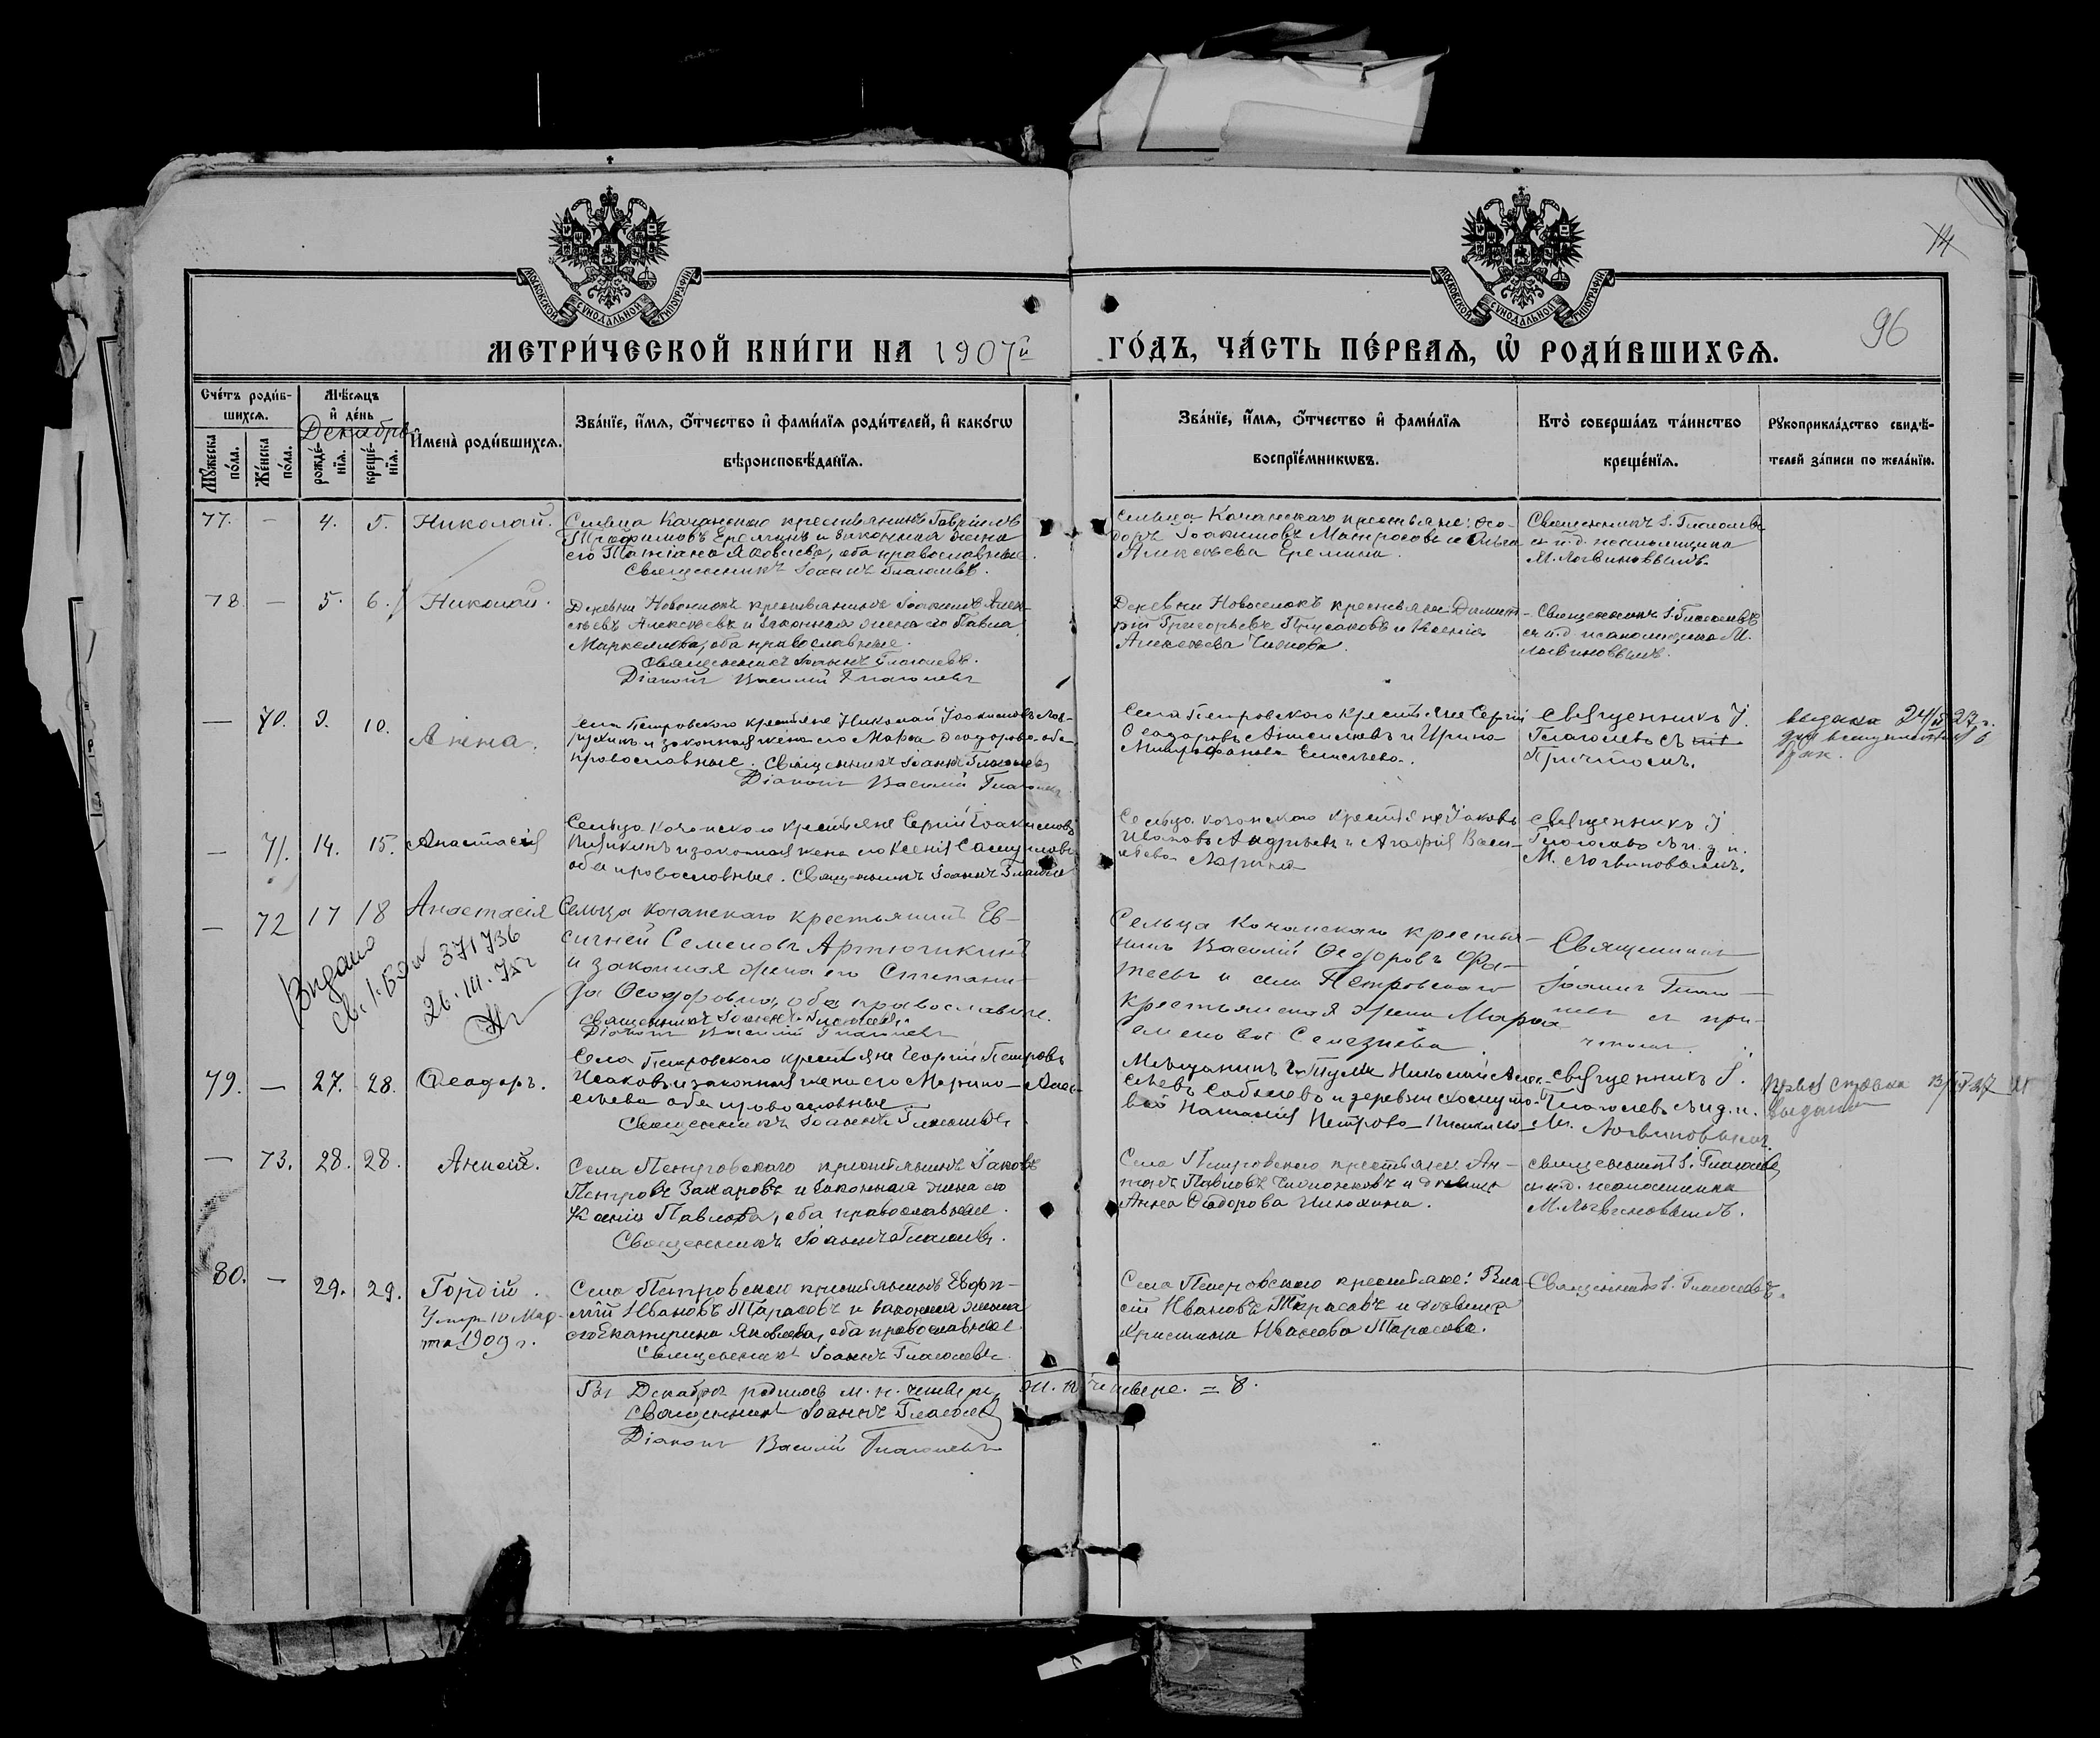 14
96
МОСКОВСКОЙ СѴНОДАЛЬНОЙ ТИПОГРАФІИ
МОСКОВСКОЙ СѴНОДАЛЬНОЙ ТИПОГРАФІИ
МЕТРИ́ЧЕСКОЙ КНИ́ГИ НА 1907й ГО́ДЪ, ЧА́СТЬ ПЕ́РВАѦ, Ѡ РОДИ́ВШИХСѦ.
Сче́тъ роди́в-
шихсѧ.
Мꙋжеска по́ла.
Же́нска по́ла.
Мѣ́сѧцъ
и҆ де́нь
Декабрь
рожде́-
нїѧ.
креще́-
нїѧ.
И҆мена̀ роди́вшихсѧ.
Зва́нїе, и҆́мѧ, ѻ҆́тчество и҆ фами́лїѧ роди́телей, и҆ како́гѡ
вѣроисповѣ́данїѧ.
Зва́нїе, и҆́мѧ, ѻ҆́тчество и҆ фами́лїѧ
воспрїе́мникѡвъ.
Кто̀ соверша́лъ та́инство
креще́нїѧ.
Рꙋкоприкла́дство свидѣ́-
телей за́писи по жела́нїю.
77. — 4. 5. Николай.
Сельца Кочанскаго крестьянинъ Гавріилъ
Трофимовъ Еремкинъ и законная жена
его Татіана Яковлева, оба православные.
Священникъ Іоаннъ Глаголевъ.
Сельца Кочанскаго крестьяне: Ѳео-
доръ Іоакимовъ Матросовъ и Ольга
Алексѣева Еремина.
Священникъ І. Глаголевъ
съ и. д. псаломщика
М. Логвиновымъ.
78 — 5. 6. Николай.
Деревни Новоселокъ крестьянинъ Іоакимъ Алек-
сѣевъ Алексѣевъ и законная жена его Павла
Маркелова, оба православные.
Священникъ Іоаннъ Глаголевъ.
Діаконъ Василій Глаголевъ
Деревни Новоселокъ крестьяне Димит-
рій Григорьевъ Прусаковъ и Ксенія
Алексѣева
Священникъ І. Глаголевъ
съ и. д. псаломщика М.
Логвиновымъ.
— 70. 9. 10. Анна.
Села Петровского крестьяне Николай Іоакимовъ
и законная жена его Марѳа Ѳеодорова оба
православные. Священникъ Іоаннъ Глаголевъ
Діаконъ Василій Глаголевъ
Села Петровского крестьяне Сергій
Ѳеодоровъ Анисимовъ и Ирина
Митрофанова Елисѣева.
Священникъ І.
Глаголевъ съ
Причтомъ.
выдана 24/ 27 г.
для вступления в
брак.
— 71. 14. 15. Анастасія
Сельца Кочанского крестьяне Сергій Іоакимовъ
и законная жена его Ксенія Самуилова
оба православные. Священникъ Іоаннъ Глаголевъ
Сельца Кочанского крестьяне Іаковъ
Ивановъ Андреевъ и Агафія Васи-
льева Ларина
Священникъ І
Глаголевъ съ и. д. п.
М. Логвиновымъ.
— 72 17 18 Анастасія
Сельца Кочанскаго крестьянинъ Ев-
сигней Семеновъ Артюшкинъ
и законная жена его Степани-
да Ѳеодоровна, оба православные.
Священникъ Іоаннъ Глаголевъ.
Діаконъ Василій Глаголевъ
Сельца Кочанскаго крестья-
нинъ Василій Ѳеодоровъ Фа-
теевъ и села Петровскаго
крестьянская жена Марѳа
Семенова Селезнева.
Священникъ
Іоаннъ Глаго-
левъ съ при-
чтомъ.
Видано
св. І-БО № 371736
26. III. 75г
79. — 27. 28. Ѳеодоръ.
Села Петровского крестьяне Георгій Петровъ
Исаковъ и законная жена его Марина Алек-
сѣева оба православные
Священникъ Іоаннъ Глаголевъ
Мѣщанинъ г. Тулы Николай Алек-
сѣевъ Соболевъ и деревни
Наталія Петрова
Священникъ І.
Глаголевъ съ и. д. п.
М. Логвиновымъ
справка 13/ 27
выдана
— 73. 28. 28. Анисія.
Села Петровскаго крестьянинъ Іаковъ
Петровъ Захаровъ и законная жена его
Ксенія Павлова, оба православные.
Священникъ Іоаннъ Глаголевъ.
Села Петровскаго крестьяне Ан-
Павловъ и дѣвица
Анна Ѳеодорова Илюхина.
Священникъ І. Глаголевъ
съ и. д. псаломщика
М. Логвиновымъ.
80. — 29. 29. Гордій.
Умеръ 10 Мар-
та 1909 г.
Села Петровскаго крестьянинъ Евфи-
мій Ивановъ Тарасовъ и законная жена
его Екатерина Яковлева, оба православные.
Священникъ Іоаннъ Глаголевъ
Села Петровскаго крестьяне: Вла-
сій Ивановъ Тарасовъ и дѣвица
Христина Иванова Тарасова.
Священникъ І. Глаголевъ.
Въ Декабрѣ родилось м. п. четверо, ж. п. четверо. = 8.
Священникъ Іоаннъ Глаголевъ
Діаконъ Василій Глаголевъ